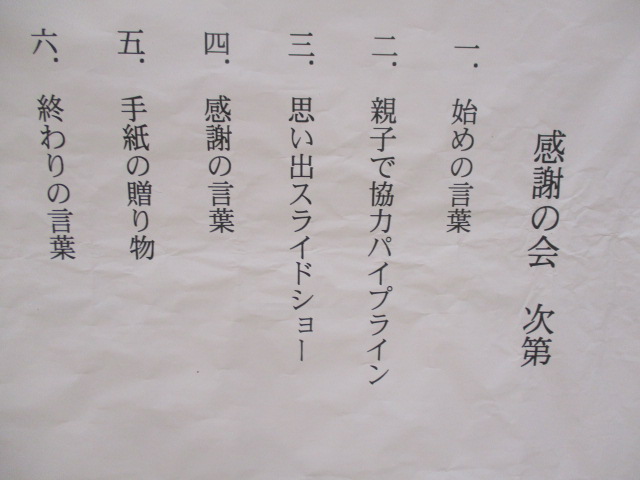 感謝の会　次第
一．始めの言葉
二．親子で協力パイプライン
三．思い出スライドショー
四．感謝の言葉
五．手紙の贈り物
六．終わりの言葉